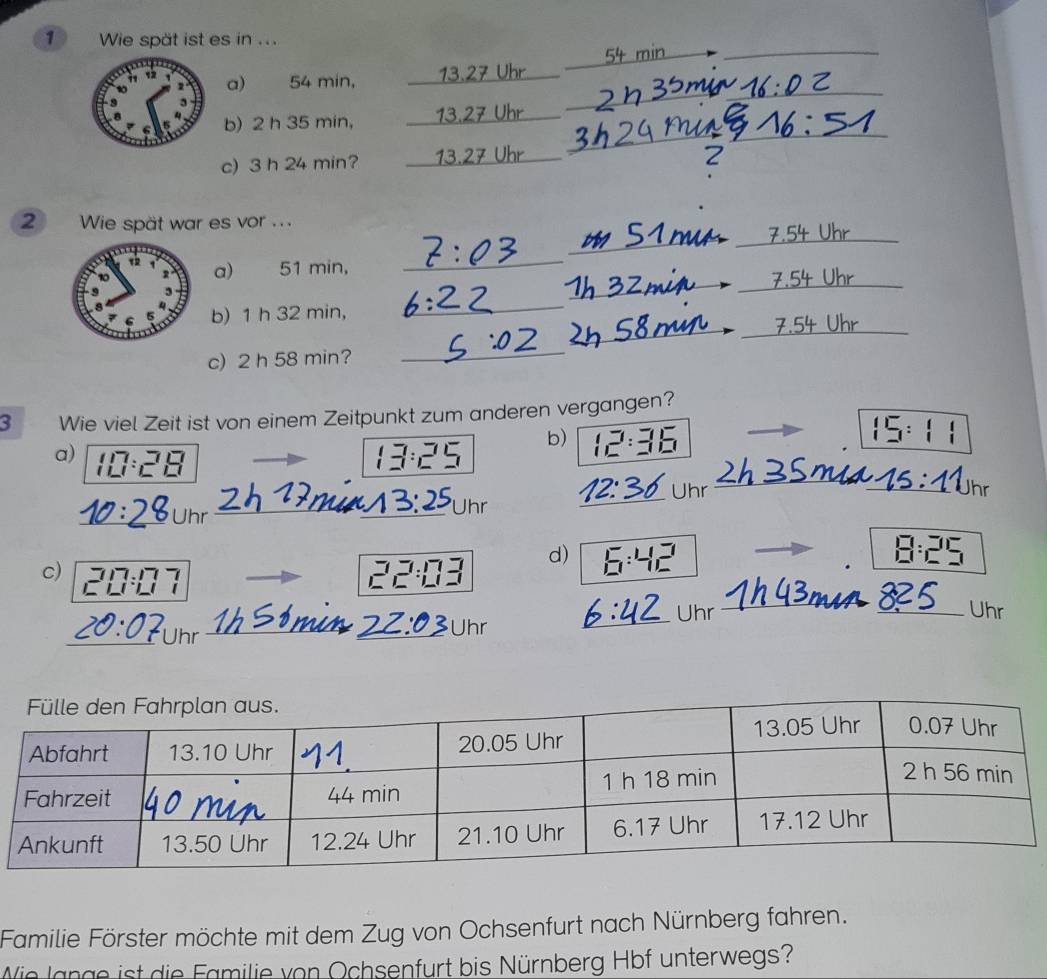 1 Wie spät ist es in ...
a) 54 min, 13.27 Uhr 54 min
b) 2 h 35 min, 13.27 Uhr 2h 35min 16:02
c) 3 h 24 min? 13.27 Uhr 3h 24 min 16:51
?
2 Wie spät war es vor ...
a) 51 min, 7:03 51 min 7.54 Uhr
b) 1 h 32 min, 6:22 1h 32min 7.54 Uhr
c) 2 h 58 min? 5:02 2h 58min 7.54 Uhr
3 Wie viel Zeit ist von einem Zeitpunkt zum anderen vergangen?
a) 10:28 13:25 b) 12:36 15:11
10:28 Uhr 2h 17min 13:25 Uhr 12:36 Uhr 2h 35min 15:11 Uhr
c) 20:07 22:03 d) 6:42 8:25
20:07 Uhr 1h 56min 22:03 Uhr 6:42 Uhr 1h 43min 8.25 Uhr
Fülle den Fahrplan aus.
Abfahrt 13.10 Uhr 11. 20.05 Uhr 13.05 Uhr 0.07 Uhr
Fahrzeit 40 min 44 min 1 h 18 min 2 h 56 min
Ankunft 13.50 Uhr 12.24 Uhr 21.10 Uhr 6.17 Uhr 17.12 Uhr
Familie Förster möchte mit dem Zug von Ochsenfurt nach Nürnberg fahren.
Wie lange ist die Familie von Ochsenfurt bis Nürnberg Hbf unterwegs?